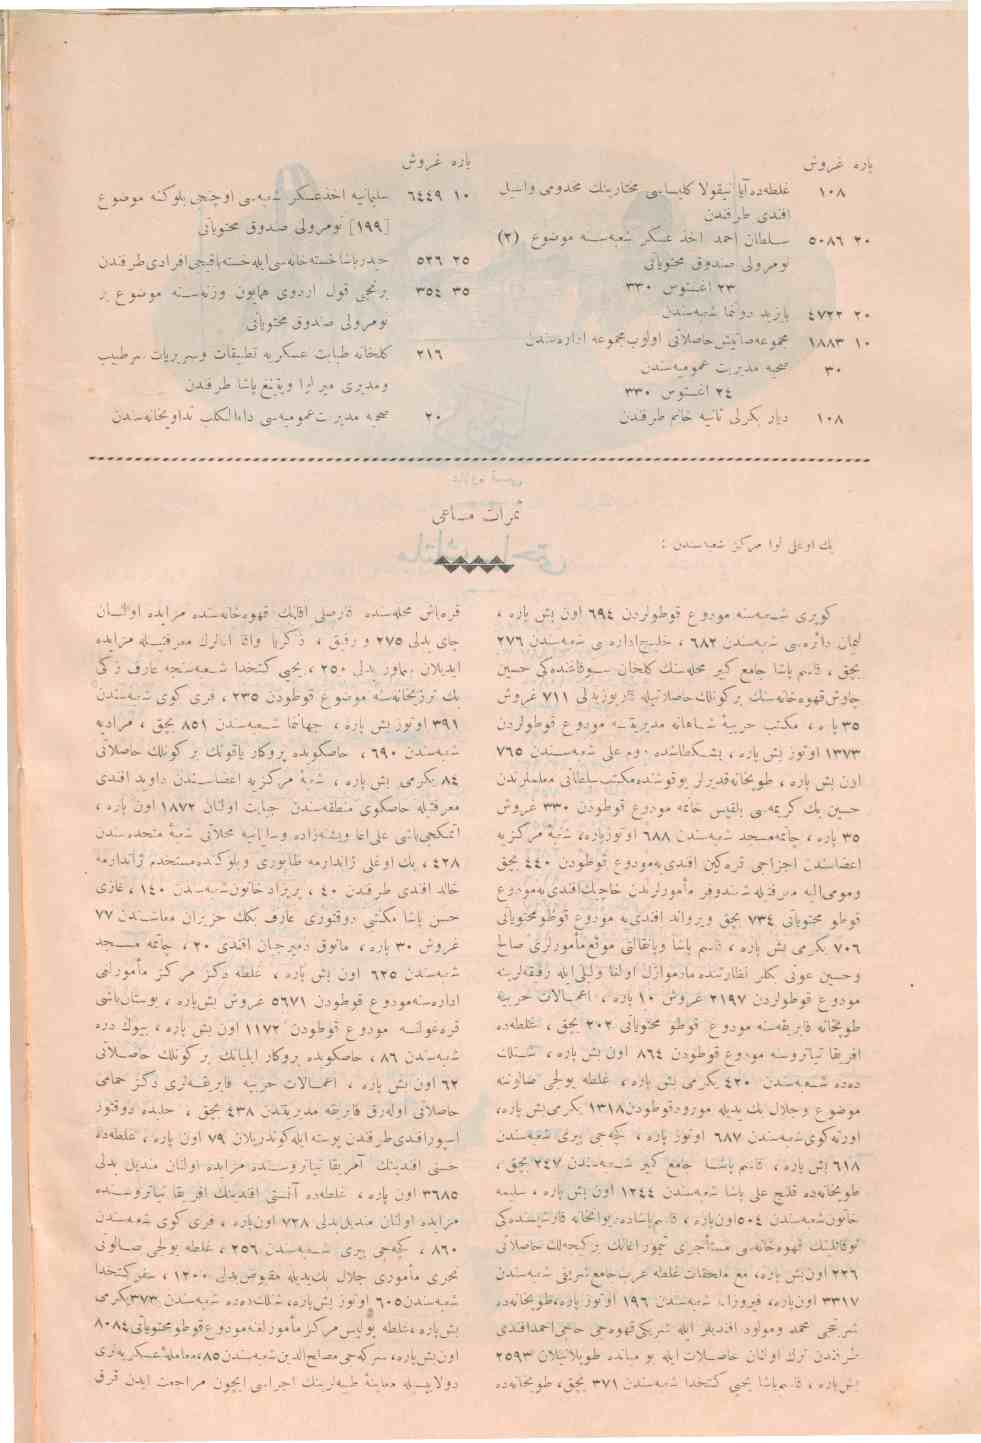 پاره غروش
١٠٨ غلطه‌ده آیا نیقولا کلیساسی مختارینك مخدومی واسیل
افندی طرفندن
٢٠ ٥٠٨٦ سلطان احمد اخذ عسکر شعبه‌سنه موضوع (٢)
نومرولی صندوق محتویاتی
٢٣ اغستوس ٣٣٠
٢٠ ٤٧٢٢ بایزید دوننما شعبه‌سندن
١٠ ١٨٨٣ مجموعه صاتیش حاصلاتی اولوب مجموعه اداره‌سندن
٣٠ صحیه مدیریت عمومیه‌سندن
٢٤ اغستوس ٣٣٠
١٠٨ دیار بکرلی تانیه خانم طرفندن
پاره غروش
١٠ ٦٤٤٩ سلیمانیه اخذعسکر شعبه‌سی اوچنجی بلوکنه موضوع
[١٩٩] نومرولی صندوق محتویاتی
٢٥ ٥٢٦ حیدرپاشا خسته‌خانه‌سی ایله خسته‌باقیجی افرادی طرفندن
٣٥ ٣٥٤ برنجی قول اردوی همایون وزنه‌سنه موضوع بر
نومرولی صندوق محتویاتی
٢١٦ کلخانه طبابت عسکریه تطبیقات وسریریات سرطبیب
ومدیری میرلوا ویتینغ پاشا طرفندن
٢٠ صحیه مدیریت عمومیه‌سی داءالکلب تداویخانه‌سندن
ثمرات مساعی
بك اوغلی لوا مرکز شعبه‌سندن :
کوپری شعبه‌سنه مودوع قوطولردن ٦٩٤ اون بش پاره ،
لیمان دائره‌سی شعبه‌سندن ٦٨٢ ، خلیج اداره‌سی شعبه‌سندن ٢٧٦
بچق ، قاسم پاشا جامع کبیر محله‌سنك کلخان سوقاغنده‌کی حسین
چاوش قهوه‌خانه‌سنك برکونلك حاصلاتیله قارپوز بدلی ٧١١ غروش
٣٥ پاره ، مکتب حربیۀ شاهانه مدیریتنه مودوع قوطولردن
١٣٧٣ اوتوز بش پاره ، بشکطاشده روم علی شعبه‌سندن ٧٦٥
اون بش پاره ، طوپخانه قدیرلر یوقوشنده مکتب سلطانی معلملرندن
حسین بك کریمه‌سی بلقیس خانمه مودوع قوطودن ٣٣٠ غروش
٣٥ پاره ، چاتمه مسجد شعبه‌سندن ٦٨٨ اوتوزپاره ، شعبۀ مرکزیه
اعضاسندن اجزاجی قره‌کین افندی‌یه مودوع قوطودن ٤٤٠ بچق
ومومی‌الیه معرفتیله شمندوفر مأمورلرندن خاچیك افندی‌یه مودوع
قوطو محتویاتی ٧٣٤ بچق ویرواند افندی‌یه مودوع قوطو محتویاتی
٧٠٦ یکرمی بش پاره ، قاسم پاشا وپانغالتی موقع مأمورلری صالح
وحسین عونی بکلر نظارتنده مادموازل اولغا ولیلی ایله رفیقه‌لرینه
مودوع قوطولردن ٢١٩٧ غروش ١٠ پاره ، اعمالات حربیه
طوپخانه فابریقه‌سنه مودوع قوطو محتویاتی ٢٠٢ بچق ، غلطه‌ده
افریقا تیاتروسنه مودوع قوطودن ٨٦٤ اون بش پاره ، شنلك
دده شعبه‌سندن ٤٢٠ یکرمی بش پاره ، غلطه یولجی صالوننه
موضوع وجلال بك یدیله مورود قوطودن ١٣١٨ یکرمی بش پاره،
اورته‌کوی شعبه‌سندن ٦٨٧ اوتوز پاره ، کچه‌جی پیری شعبه‌سندن
٦١٨ بش پاره ، قاسم پاشا جامع کبیر شعبه‌سندن ٢٤٧ بچق ،
طوپخانه‌ده قلیج علی پاشا شعبه‌سندن ١٢٤٤ اون بش پاره ، سلیمه
خاتون شعبه‌سندن ٥٠٤ اون پاره ، قاسم پاشاده دیوانخانه قارشیسنده‌کی
توقاتلینك قهوه‌خانه‌سی مستأجری تیمور اغانك برکیجه‌لك حاصلاتی
٢٢٦ اون بش پاره، مع ملحقات غلطه عرب جامع شریفی شعبه‌سندن
٣٣١٧ اون پاره، فیروزاغا شعبه‌سندن ١٩٦ اوتوز پاره، طوپخانه‌ده
شربتجی محمد ومولود افندیلر ایله شریکی قهوه‌جی حاجی احمد افندی
طرفندن ترك اولنان حاصلات ایله بو میانده طوپلانیلان ٢٥٩٣
بش پاره ، قاسم پاشا یحیی کتخدا شعبه‌سندن ٣٧١ بچق، طوپخانه‌ده
قره‌باش محله‌سنده قارصلی اقانك قهوه‌خانه‌سنده مزایده اولنان
چای بدلی ٢٧٥ و رفیق ، ذکریا واغا اغالرك معرفتیله مزایده
ایدیلان بدلی ٢٥٠ ، یحیی کتخدا شعبه‌سنجه عارف زکی
بك ترزیخانه‌سنه موضوع قوطودن ٢٣٥ ، فری کوی شعبه‌سندن
٣٩١ اوتوز بش پاره ، جهاننما شعبه‌سندن ٨٥١ بچق ، مرادیه
شعبه‌سندن ٦٩٠ ، حاصکویده پروکار یاقونك برکونلك حاصلاتی
٨٤ یکرمی بش پاره ، شعبۀ مرکزیه اعضاسندن داوید افندی
معرفتیله حاصکوی منطقه‌سندن جبایت اولنان ١٨٧٢ اون پاره ،
اتمکجی باشی علی اغا وبیشه‌زاده وسلیمانیه محلاتی شعبۀ متحده‌سندن
٤٢٨ ، بك اوغلی ژاندارمه طابوری وبلوکنده مستخدم ژاندارمه
خالد افندی طرفندن ٤٠ ، پریزاد خاتون شعبه‌سندن ١٤٠ ، غازی
حسن پاشا مکتبی دوقتوری عارف بکك حزیران معاشندن ٧٧
غروش ٣٠ پاره ، مانوق دمیرجیان افندی ٢٠ ، چاتمه مسجد
شعبه‌سندن ٦٢٥ اون بش پاره ، غلطه دکز مرکز مأمورلغی
اداره‌سنه مودوع قوطودن ٥٦٧١ غروش بش پاره ، بوستان‌باشی
قره‌غولنه مودوع قوطودن ١١٧٢ اون بش پاره ، بیوك دره
شعبه‌سندن ٨٦ ، حاصکویده پروکار ایلیانك برکونلك حاصلاتی
٦٢ اون بش پاره ، اعمالات حربیه فابریقه‌لری دکز حمامی
حاصلاتی اوله‌رق فابریقه مدیریتندن ٤٣٨ بچق ، حلبده دوقتور
اسپور افندی طرفندن پوسته ایله کوندریلان ٧٩ اون پاره ، غلطه‌ده
حسنی افندینك آمریقا تیاتروسنده مزایده اولنان مندیل بدلی
٣٦٨٥ اون پاره ، غلطه‌ده آنستی افندینك افریقا تیاتروسنده
مزایده اولنان مندیل بدلی ٧٢٨ اون پاره ، فری کوی شعبه‌سندن
٨٦٠ ، کچه‌جی پیری شعبه‌سندن ٢٥٦ ، غلطه یولجی صالونی
تحری مأموری جلال بك یدیله مقبوض بدلی ١٢٠٠ ، سفر کتخدا
شعبه‌سندن ٦٠٥ اوتوز بش پاره، شنلك دده شعبه‌سندن ٣٧٣ یکرمی
بش پاره، غلطه پولیس مرکز مأمورلغنه مودوع قوطو محتویاتی ٨٠٨٤
اون بش پاره، سرکه‌جی مصلح الدین شعبه‌سندن ٨٥، معاملۀ عسکریه‌لری
دولاییسیله معاینۀ طبیه‌لرینك اجراسی ایچون مراجعت ایدن قرق